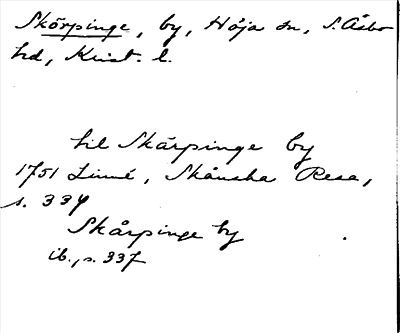 Skörpinge, by, Höja sn, S. Åsbo
hd, Krist. l.
til Skärpinge by
1751 Linné, Skånska Resa,
s. 339
Skårpinge by
ib., s. 337